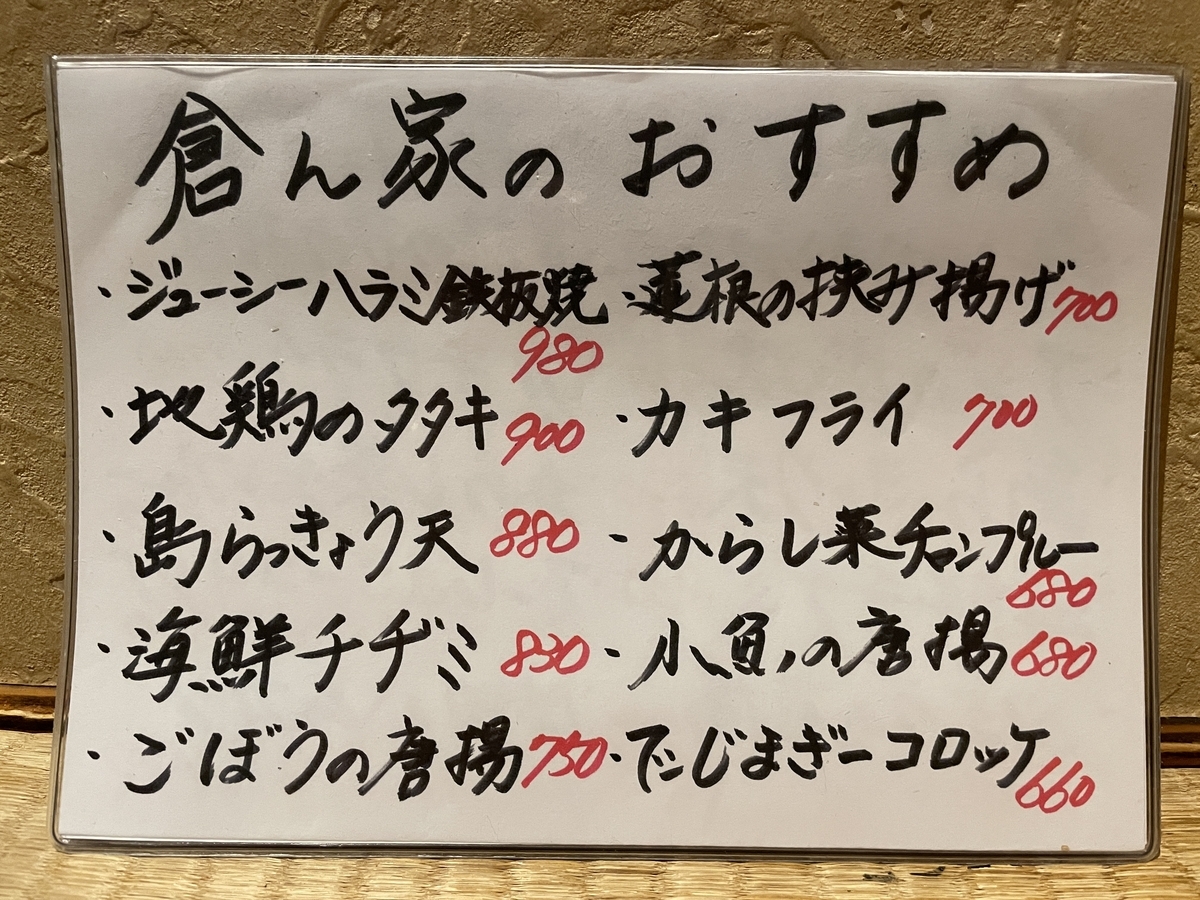 倉ん家のおすすめ
・ジューシーハラミ鉄板焼 980
・地鶏のタタキ 900
・島らっきょう天 880
・海鮮チヂミ 830
・ごぼうの唐揚 750
・蓮根の挟み揚げ 700
・カキフライ 700
・からし菜チャンプルー 680
・小魚の唐揚 680
・下じまぎーコロッケ 660